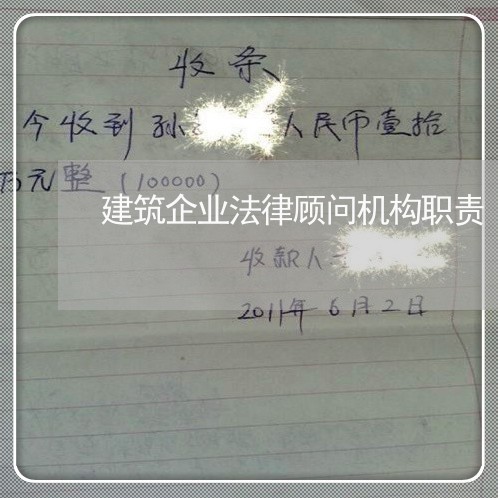 收条
今收到孙人民币壹拾
万元整（100000）
建筑企业法律顾问机构职责
收款人
2011年6月2日